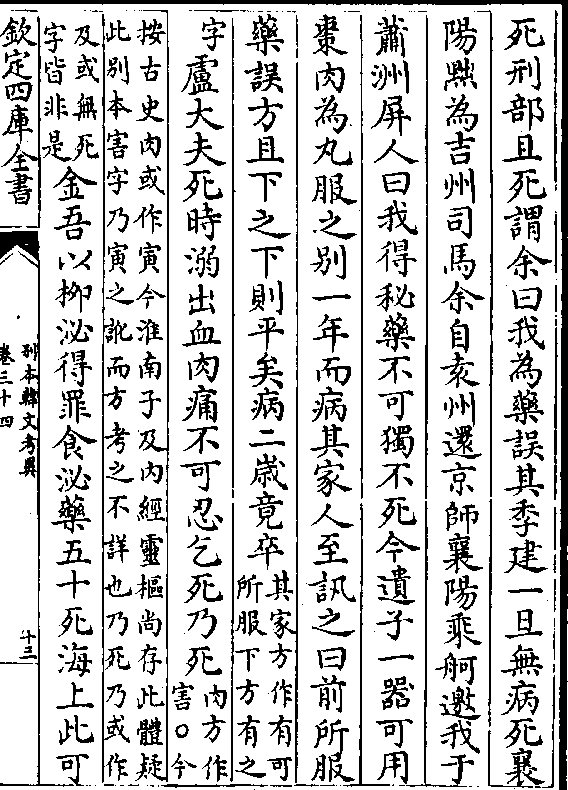 死刑部且死謂余曰我為藥誤其季建一旦無病死襄
陽黜為吉州司馬余自袁州還京師襄陽乘舸邀我于
蕭洲屏人曰我得秘藥不可獨不死今遺子一器可用
棗肉為丸服之別一年而病其家人至訊之曰前所服
藥誤方且下之下則平矣病二歲竟卒其家方作有可
所服下方有之
字盧大夫死時溺出血肉痛不可忍乞死乃死肉方作
害○今
按古史肉或作寅今淮南子及内經靈樞尚存此體疑
此别本害字乃寅之訛而方考之不詳也乃死乃或作
及或無死
字皆非是金吾以柳泌得罪食泌藥五十死海上此可
欽定四庫全書
别本韓文考異
卷三十四
十三